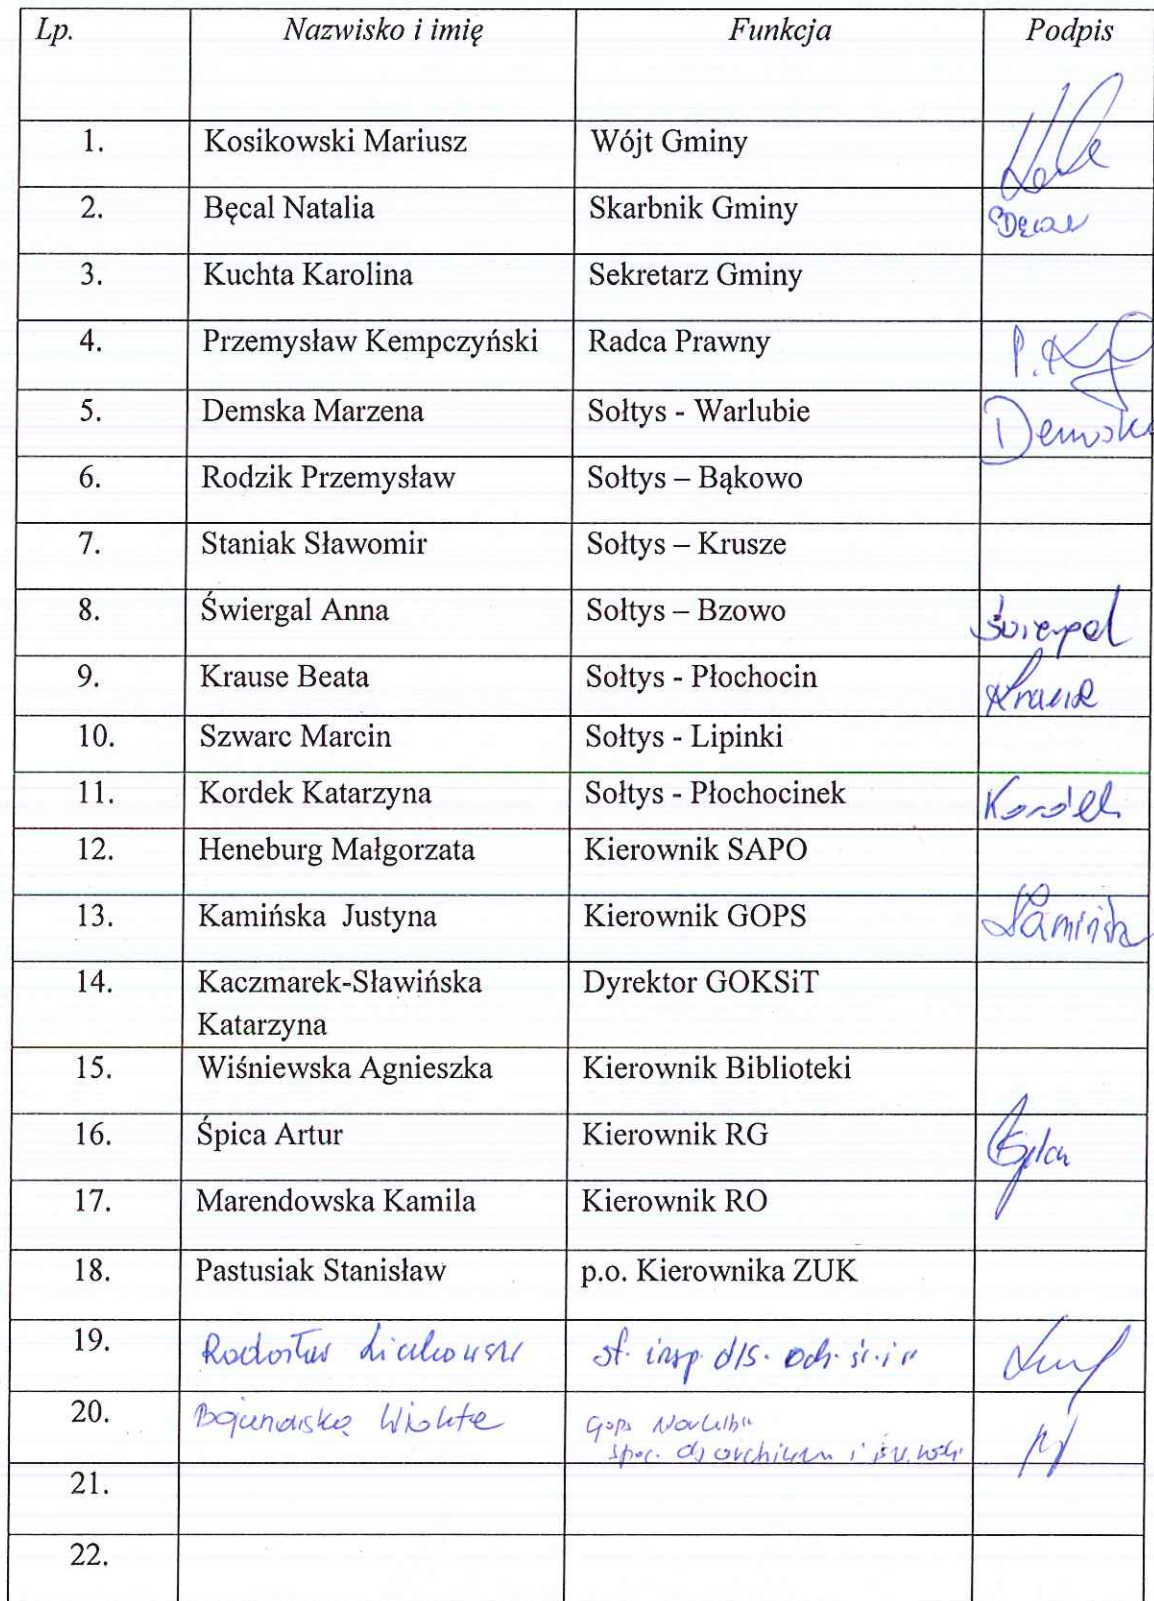 Lp. Nazwisko i imię Funkcja Podpis
1. Kosikowski Mariusz Wójt Gminy
2. Bęcal Natalia Skarbnik Gminy Bęcal
3. Kuchta Karolina Sekretarz Gminy
4. Przemysław Kempczyński Radca Prawny P.
5. Demska Marzena Sołtys - Warlubie Demska
6. Rodzik Przemysław Sołtys – Bąkowo
7. Staniak Sławomir Sołtys – Krusze
8. Świergal Anna Sołtys – Bzowo Świergal
9. Krause Beata Sołtys - Płochocin Krause
10. Szwarc Marcin Sołtys - Lipinki
11. Kordek Katarzyna Sołtys - Płochocinek Kordek
12. Heneburg Małgorzata Kierownik SAPO
13. Kamińska Justyna Kierownik GOPS Kamińska
14. Kaczmarek-Sławińska Dyrektor GOKSiT
Katarzyna
15. Wiśniewska Agnieszka Kierownik Biblioteki
16. Śpica Artur Kierownik RG
17. Marendowska Kamila Kierownik RO
18. Pastusiak Stanisław p.o. Kierownika ZUK
19. Radosław st. insp. ds.
20.
21.
22.